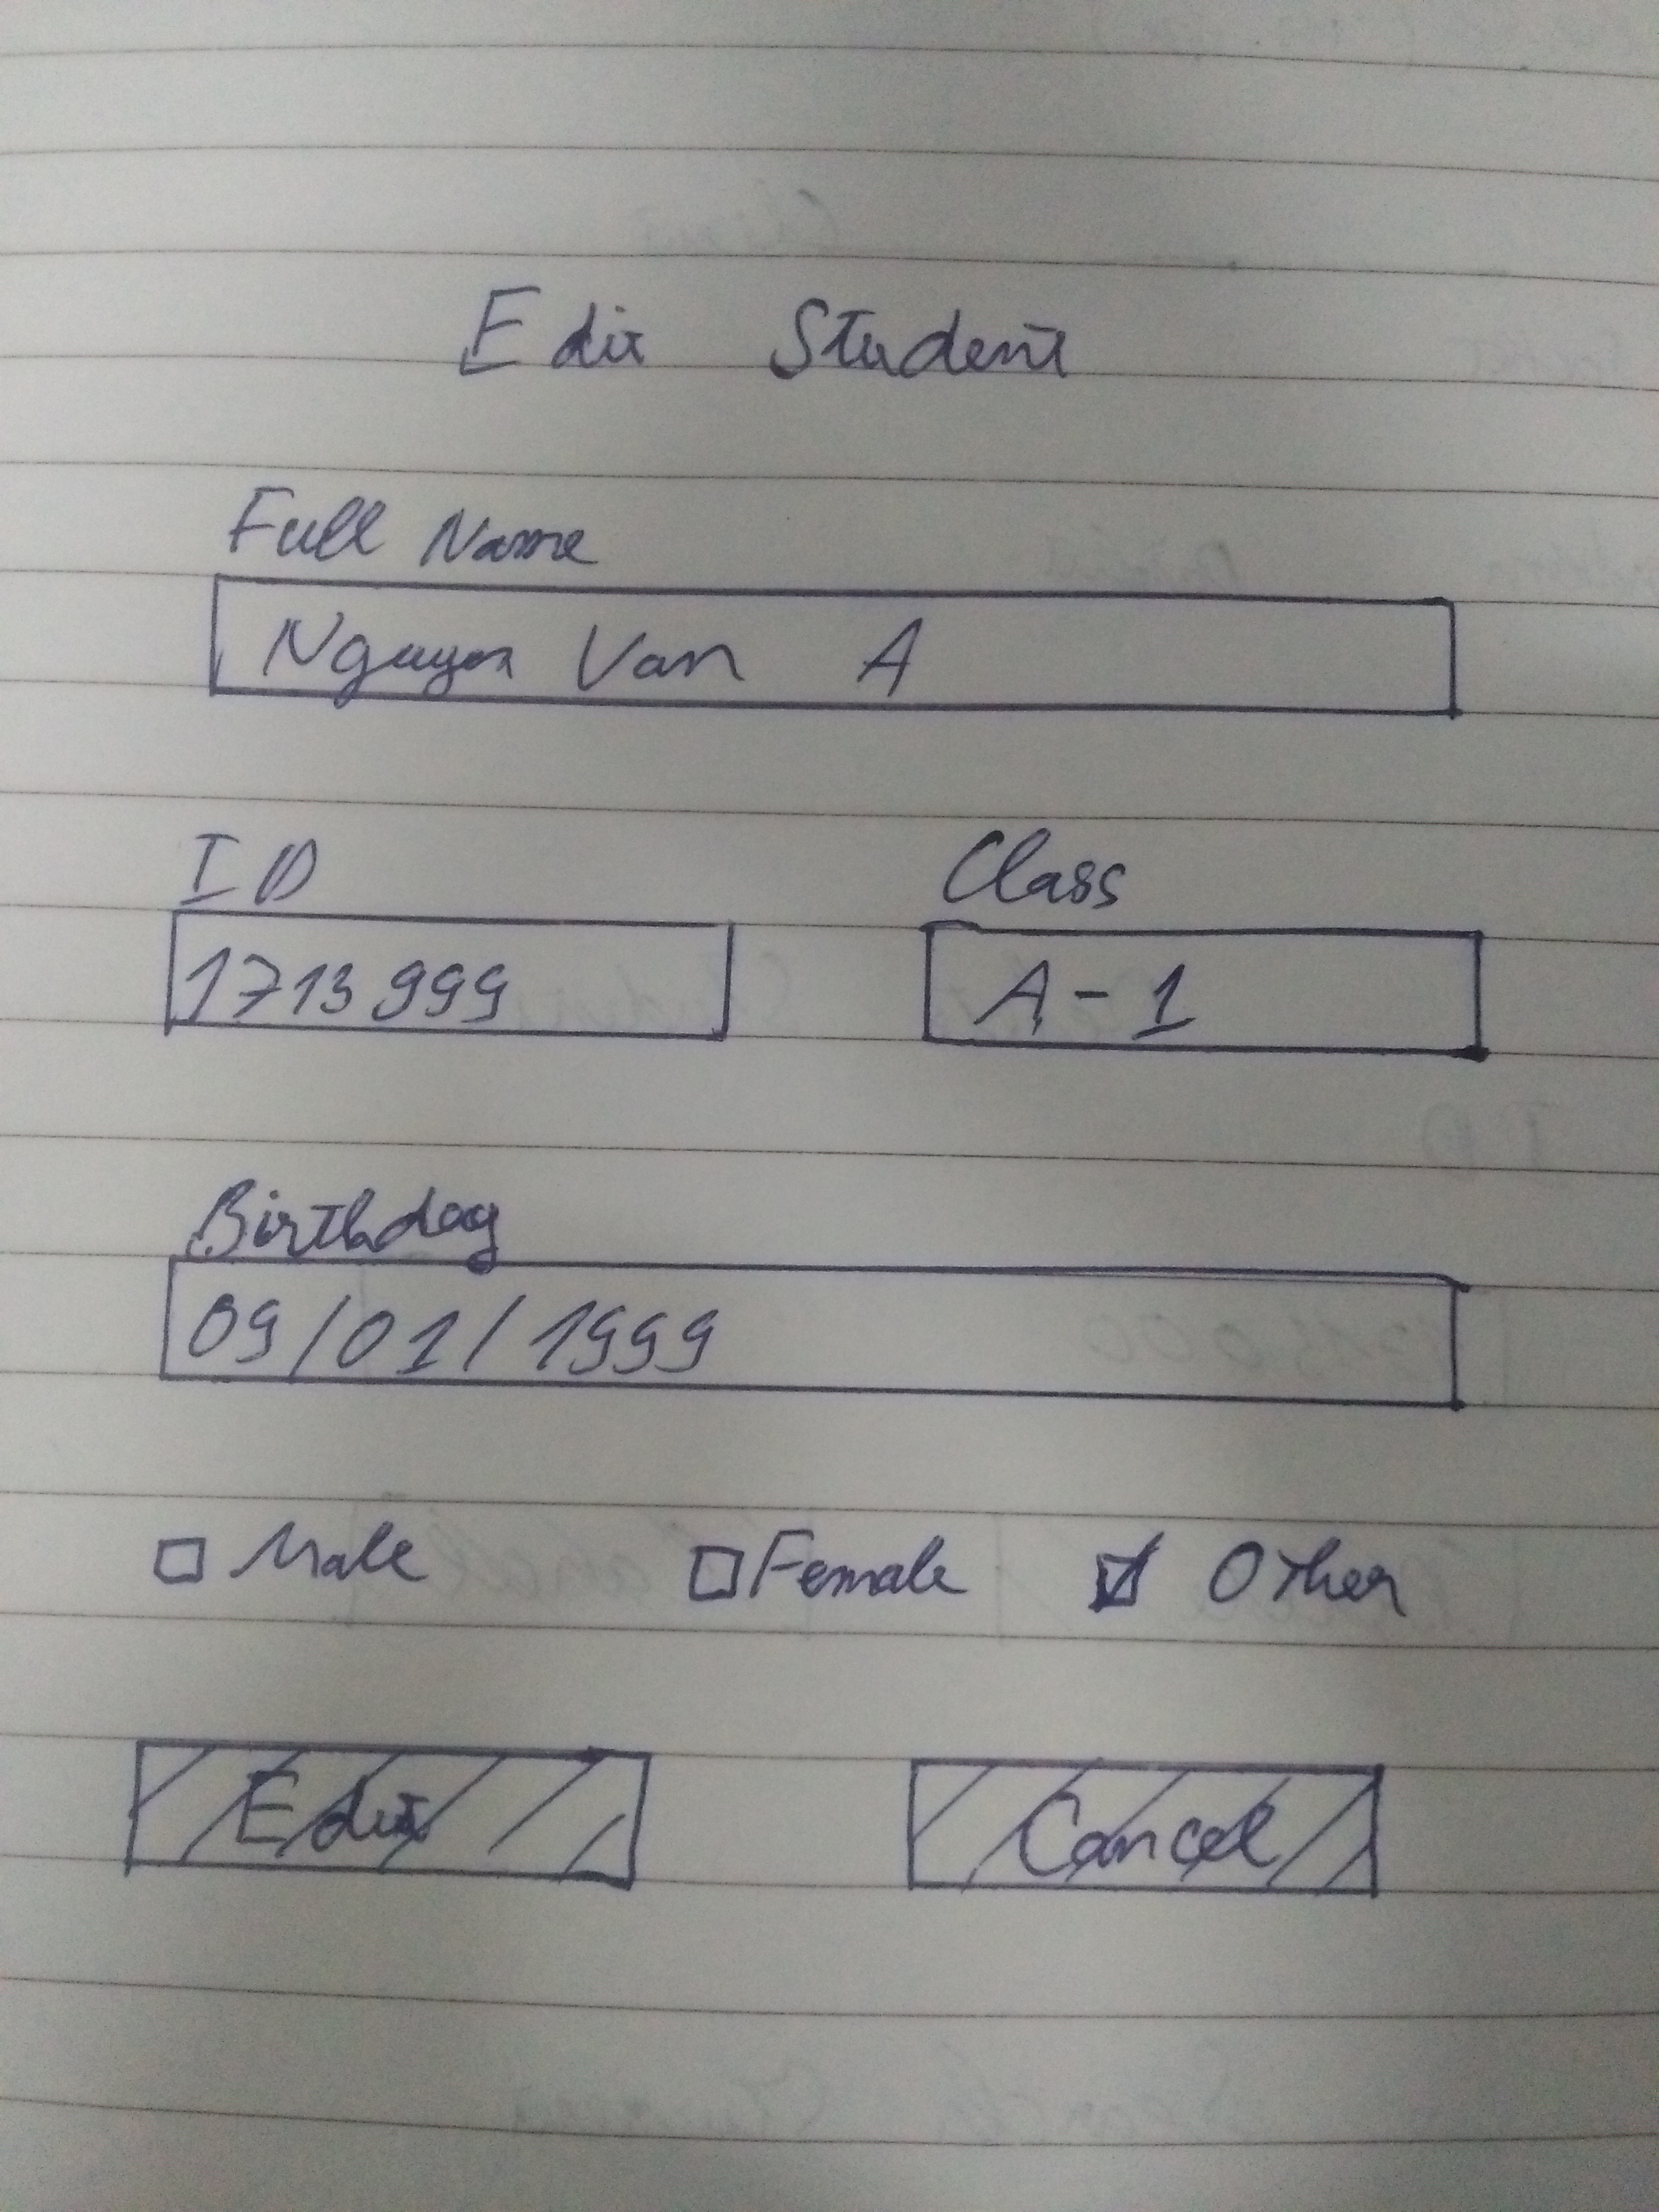 Edit Student
Full Name
Nguyen Van A
ID Class
1713999 A-1
Birthday
09/01/1999
Male Female Other
Edit Cancel